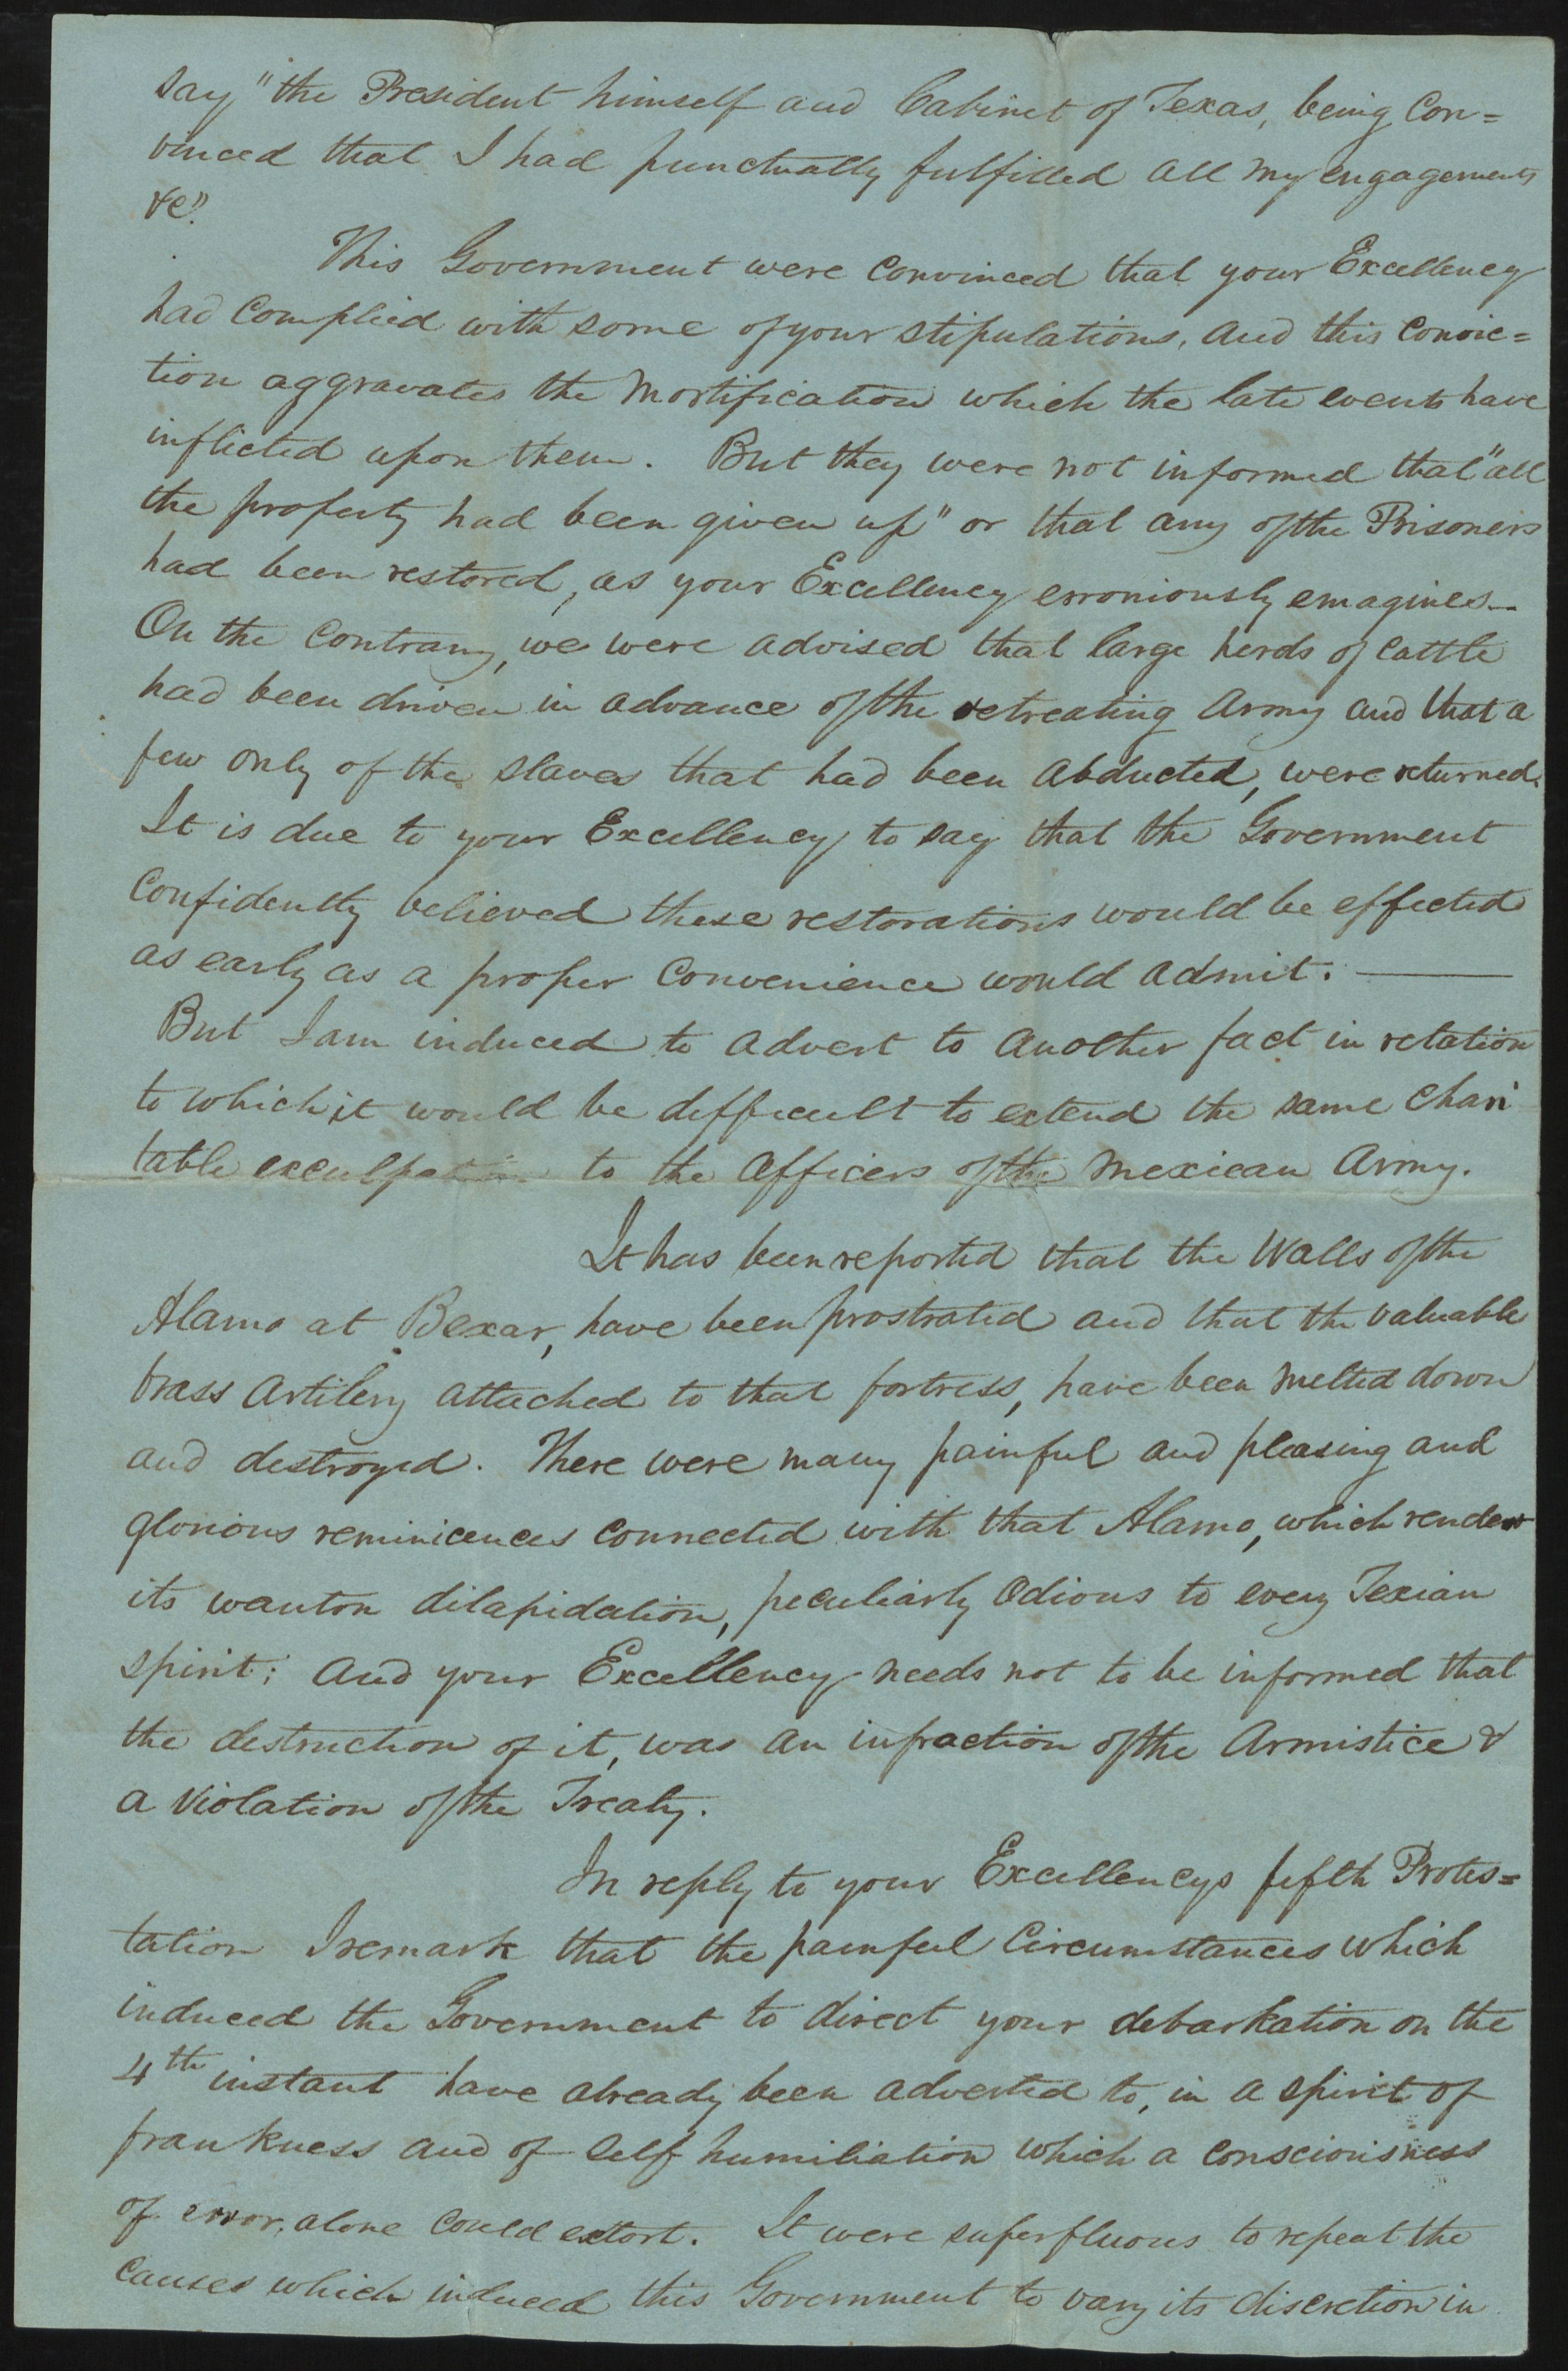 say "the President himself and Cabinet of Texas, being Con=
vinced that I had punctually fulfilled all my engagements
&c".
This Government were convinced that your Excellency
had Complied with some of your stipulations, and this Convic=
tion aggravates the Mortification which the late events have
inflicted upon them. But they were not informed that "all
the property had been given up" or that any of the Prisoners
had been restored, as your Excellency erroniously emagines—
On the Contrary, we were advised that large herds of Cattle
had been driven in advance of the retreating Army and that a
few only of the slaves that had been abducted, were returned.
It is due to your Excellency to say that the Government
Confidently believed these restorations would be effected
as early as a proper Convenience would admit. —
But I am induced to advert to another fact in relation
to which it would be difficult to extend the same Chari
table exculpation to the Officers of the Mexican Army.
It has been reported that the Walls of the
Alamo at Bexar, have been prostrated and that the valuable
brass Artilery attached to that fortress, have been Melted down
and destroyed. There were many painful and pleasing and
glorious reminicences Connected with that Alamo, which renders
its wanton dilapidation, peculiarly Odious to every Texian
spirit; and your Excellency needs not to be informed that
the destruction of it, was an infraction of the Armistice &
a Violation of the Treaty.
In reply to your Excellencys fifth Protes=
tation I remark that the painful Circumstances which
induced the Government to direct your debarkation on the
4th instant have already been adverted to, in a spirit of
frankness and of self humiliation which a consciousness
of error, alone could extort. It were superfluous to repeat the
Causes which induced this Government to vary its discretion in